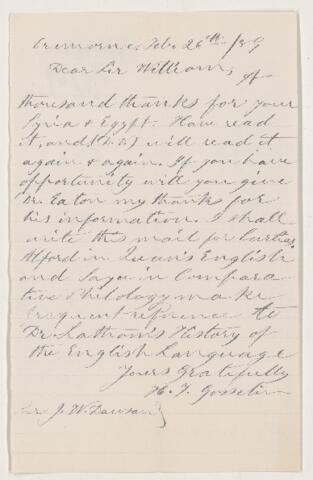 Cremorne, Feby 26th /89
Dear Sir William,
A
thousand thanks for your
Syria & Egypt. Have read
it, and (D.V.) will read it
again & again. If you have
opportunity will you give
Dr. Eaton my thanks for
his information. I shall
write this mail for Earlier
Alford in Quean's English
and Sayce in Compara-
tive Philology make
frequent reference to
Dr. Latham's History of
the English Language
Yours Gratefully
H. F. Gosselin
Sir J. W. Dawson